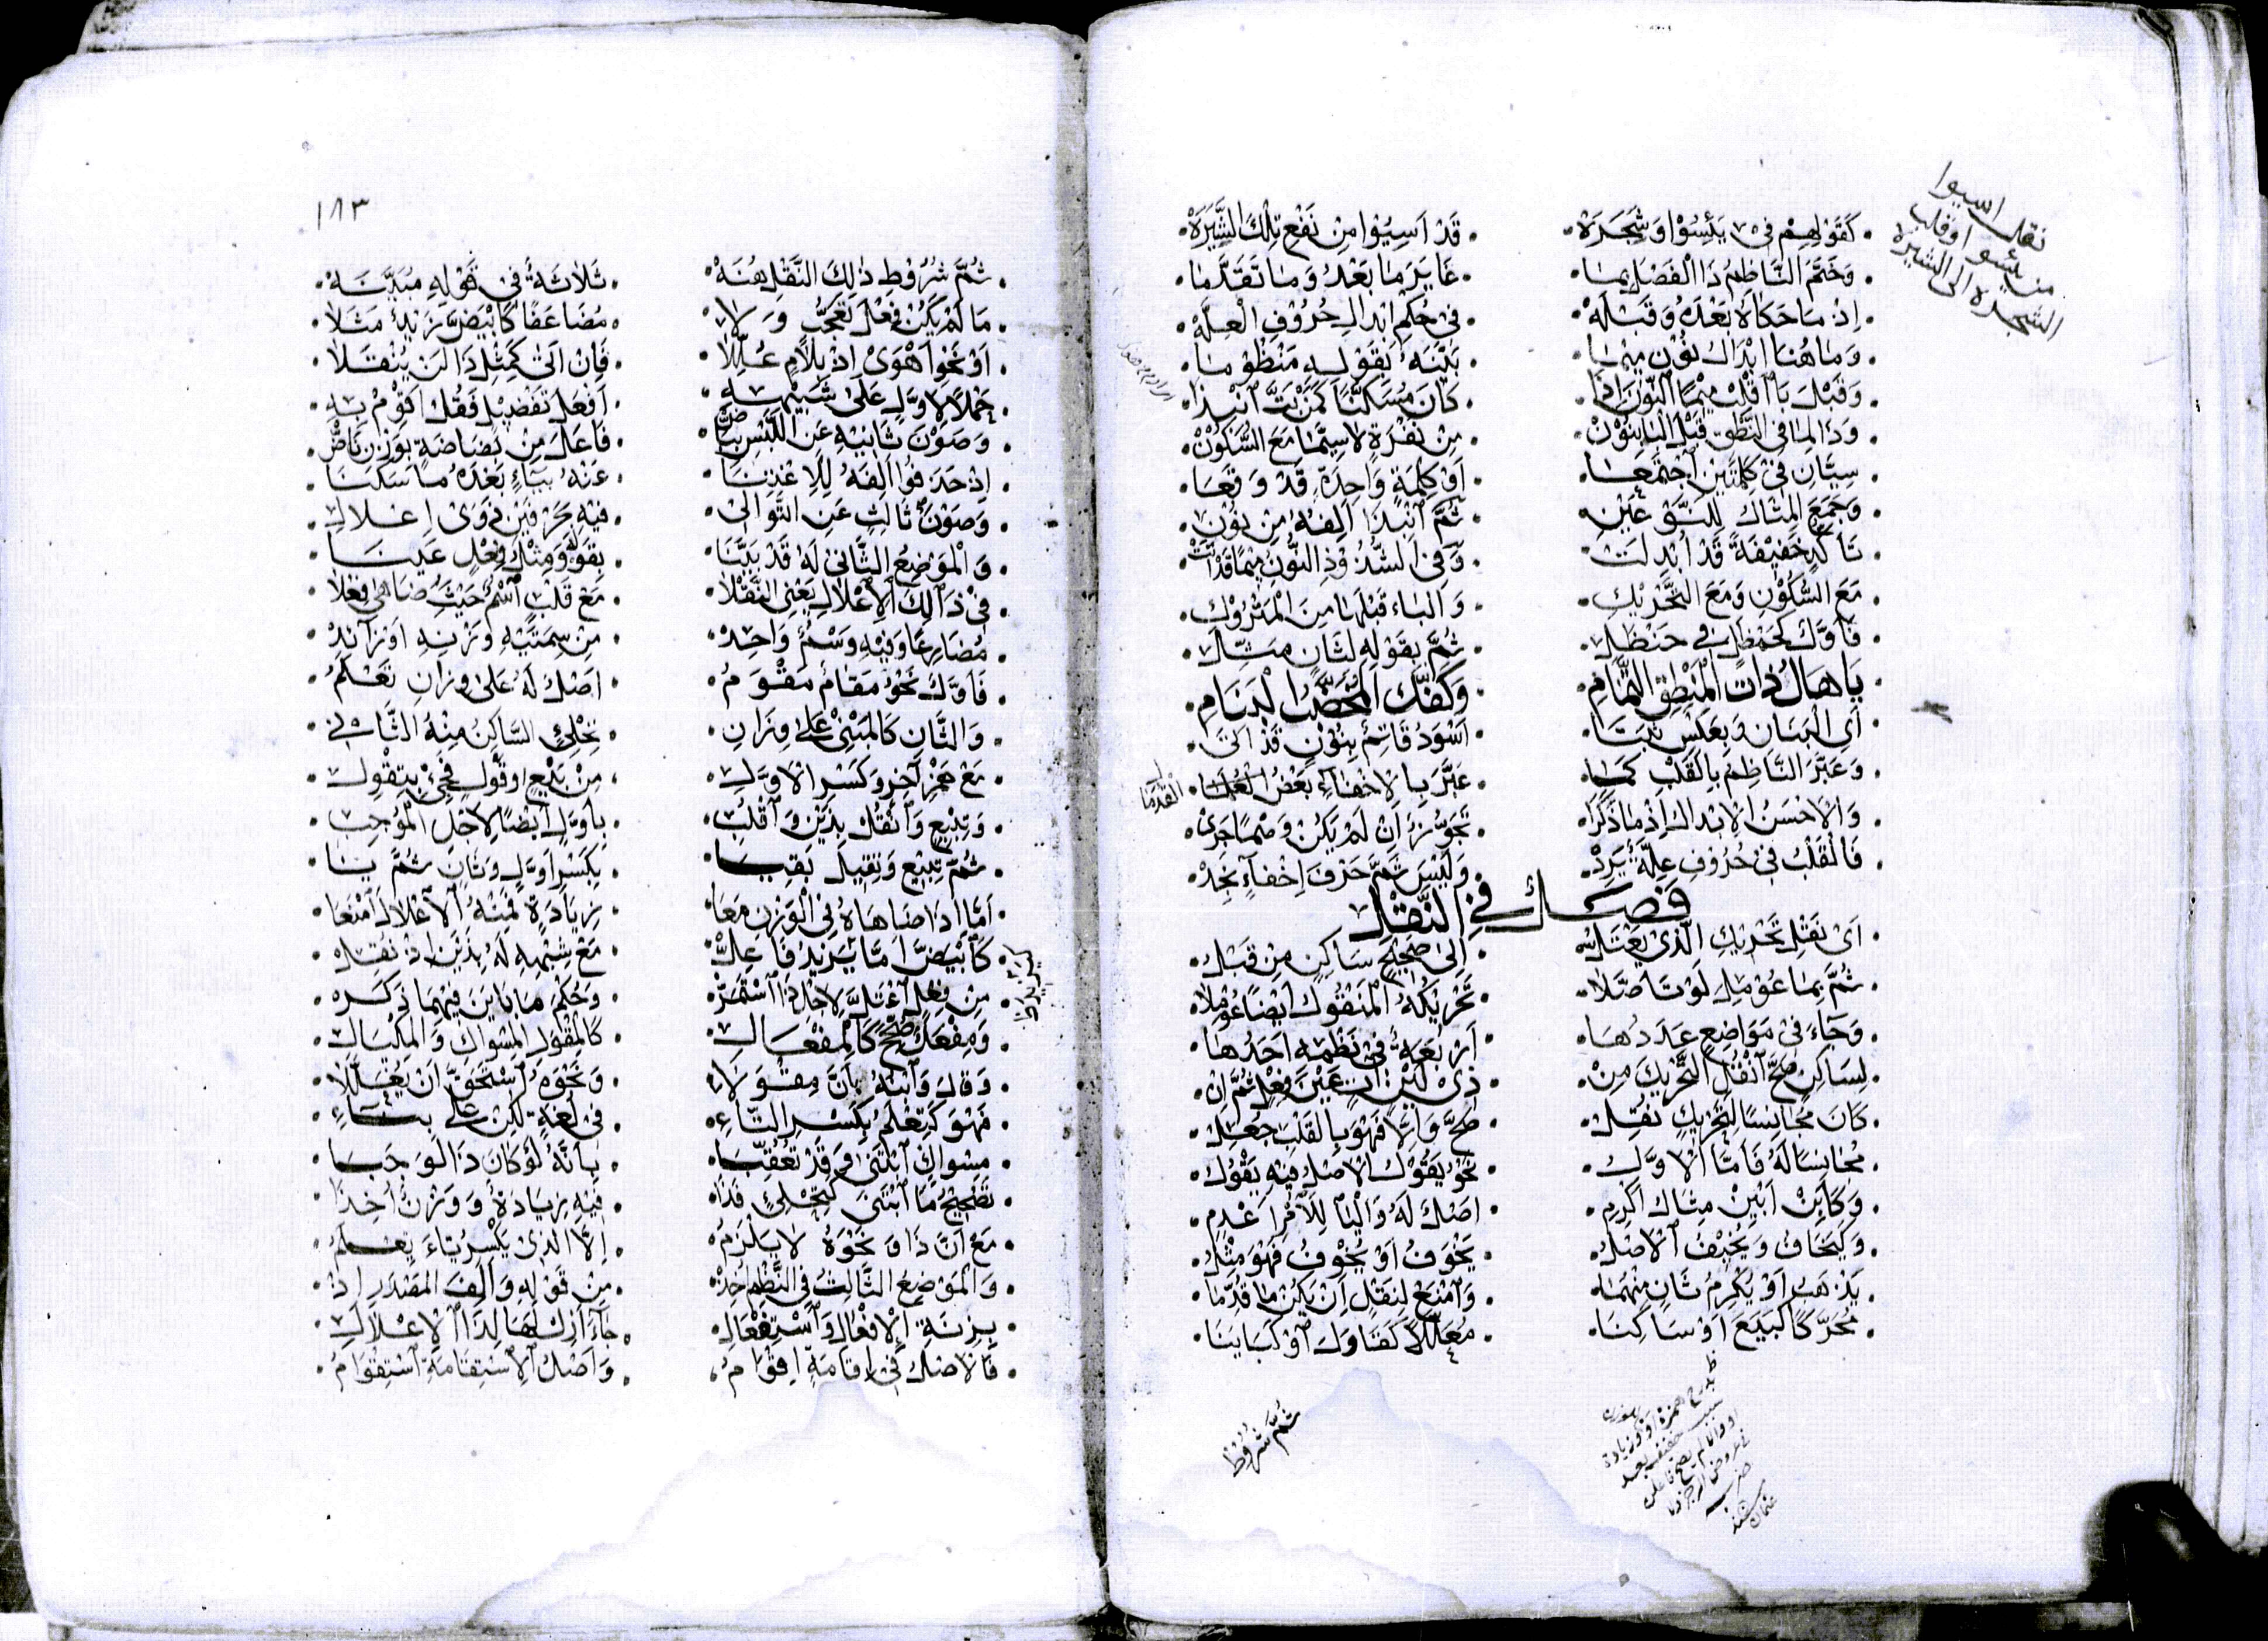 كَقَوْلِهِمْ فِي يَئِسُوا وَشَجَرَةْ قَدْ اَسِيُوا مِنْ نَفْعِ تِلْكَ الشَّيَرَةْ
وَخَتَمَ النَّاظِمُ ذَا الْفَصْلَ بِمَا غَايَرَ مَا بَعْدُ وَمَا تَقَدَّمَا
اِذْ مَا حَكَاهُ بَعْدَهُ وَقَبْلَهْ فِي حُكْمِ اِبْدَالِ حُرُوفِ الْعِلَّهْ
وَمَا هُنَا اِبْدَالُ نُوْنٍ مِيْمَا بَيَّنَهُ بِقَوْلِهِ مَنْظُوْمَا
وَقَبْلَ بَا اقْلِبْ مِيْمًا النُّوْنَ اِذَا كَانَ مُسَكَّنًا كَمَنْ بَتَّ انْبِذَا
وَذَا لِمَا فِي النُّطْقِ قَبْلَ الْبَا بِنُوْنْ مِنْ نُفْرَةٍ لَاسِيَّمَا مَعَ السُّكُوْنْ
سِيَّانِ فِي كِلْمَتَيْنِ اجْتَمَعَا اَوْ كِلْمَةٍ وَاحِدَةٍ قَدْ وَقَعَا
وَجَمَعَ الْمِثَالُ لِلنَّوْعَيْنِ ثُمَّ انْبِذَا اَلِفُهُ مِنْ نُوْنِ
تَاكِيْدٍ خَفِيْفَةً قَدْ اُبْدِلَتْ وَفِي الشُّذُوْذِ النُّوْنُ مِيْمًا قَدْ اَتَتْ
مَعَ السُّكُوْنِ وَمَعَ التَّحْرِيْكِ وَالْبَاءُ قَبْلَهَا مِنَ الْمَتْرُوْكِ
فَاَوَّلٌ كَحَمْظَلٍ فِي حَنْظَلِ ثُمَّ بِقَوْلِهِ لِثَانٍ مَثِّلِ
يَا هَالُ ذَاتَ الْمَنْطِقِ التَّمْتَامِ وَكَفِّكِ الْمُخَضَّبِ الْبَنَامِ
اَيِ الْبَنَانِ وَبِعَكْسٍ ثَبَتَا اَسْوَدُ قَاتِمٌ بِنُوْنٍ قَدْ اَتَى
وَعَبَّرَ النَّاظِمُ بِالْقَلْبِ كَمَا عَبَّرَ بِالْاِخْفَاءِ بَعْضُ الْعُلَمَا
وَالْاَحْسَنُ الْاِبْدَالُ اِذْ مَا ذَكَرَا تَجَوُّزٌ اِنْ لَمْ يَكُنْ وَهْمًا جَرَى
فَالْقَلْبُ فِي حُرُوْفِ عِلَّةٍ يَرِدْ وَلَيْسَ ثَمَّ حَرْفُ اِخْفَاءٍ نَجِدْ
فَصْلٌ فِي النَّقْلِ
اَيْ نَقْلِ تَحْرِيْكِ الَّذِي يَعْتَلُّ اِلَى صَحِيْحٍ سَاكِنٍ مِنْ قَبْلُ
ثُمَّ بِمَا عُوْمِلَ لَوْ تَاَصَّلَا تَحْرِيْكُهُ الْمَنْقُوْلُ اَيْضًا عُوْمِلَا
وَجَاءَ فِي مَوَاضِعٍ عَدَدُهَا اَرْبَعَةٌ فِي نَظْمِهِ اَحَدُهَا
لِسَاكِنٍ صَحَّ انْقُلِ التَّحْرِيْكَ مِنْ ذِي لِيْنٍ آتٍ عَيْنَ فِعْلٍ ثُمَّ اِنْ
كَانَ مُجَانِسًا لِتَحْرِيْكٍ نُقِلْ صَحَّ وَاِلَّا فَهْوَ بِالْقَلْبِ جُعِلْ
مُجَانِسًا لَهُ فَاَمَّا الْاَوَّلُ نَحْوُ يَقُوْلُ الْاَصْلُ فِيْهِ يَقْوُلُ
وَكَاَبِنْ اَبْيِنْ مِثَالَ اَكْرِمِ اَصْلٌ لَهُ وَالْيَا لِلْاَمْرِ اَعْدِمِ
وَكَيَخَافُ وَيُخِيْفُ الْاَصْلُ يَخْوَفُ اَوْ يُخْوِفُ فَهْوَ مِثْلُ
يَذْهَبُ اَوْ يُكْرِمُ ثَانٍ مِنْهُمَا وَامْنَعْ لِنَقْلٍ اِنْ يَكُنْ مَا قُدِّمَا
مُحَرَّكًا كَبَيَّعَ اَوْ سَاكِنَا مُعَلَّلًا كَقَاوَلَ اَوْ كَبَايَنَا
ثُمَّ شُرُوْطُ
نقل اسيوا
من يئسوا وقلب
الشجرة الى الشيرة
القدما
١٨٣
ثُمَّ شُرُوْطُ ذٰلِكَ النَّقْلِ هُنَهْ ثَلَاثَةٌ فِي قَوْلِهِ مُبَيَّنَهْ
مَا لَمْ يَكُنْ فِعْلَ تَعَجُّبٍ وَلَا مُضَاعَفًا كَابْيَضَّ زَيْدٌ مَثَلَا
اَوْ نَحْوَ اَهْوَى اِذْ بِلَامٍ عُلِّلَا فَاِنْ اَتَى كَمِثْلِ ذَا لَنْ يُنْقَلَا
حَمْلًا لِاَوَّلٍ عَلَى شَبِيْهِهِ اَفْعَلِ تَفْضِيْلٍ فَقُلْ اَقْوِمْ بِهِ
وَصَوْنَ ثَانِيْهِ عَنِ اللَّبْسِ بِبَاضّْ فَاعَلَ مِنْ بَضَاضَةٍ بِوَزْنِ نَاضّْ
اِذْ حَذَفُوا اَلِفَهُ لِلِاغْتِنَا عَنْهُ بِبَاءٍ بَعْدَهُ مَا سَكَنَا
وَصَوْنَ ثَالِثٍ عَنِ التَّوَالِي فِيْهِ حَرْفَيْنِ ذَوَيْ اِعْلَالِ
وَالْمَوْضِعُ الثَّانِي لَهُ قَدْ بَيَّنَا بِقَوْلِهِ وَمِثْلُ فِعْلٍ عَيْنَا
فِي ذَالِكَ الْاِعْلَالِ يَعْنِي النَّقْلَا مَعْ قَلْبٍ اسْمٌ حَيْثُ ضَاهَى فِعْلَا
مُضَارِعًا وَفِيْهِ وَسْمٌ وَاحِدْ مِنْ سِمَتَيْهِ وَزْنِهِ اَوْ زَائِدْ
فَاَوَّلٌ نَحْوُ مَقَامٌ مَقْوَمُ اَصْلٌ لَهُ عَلَى وِزَانِ تَعْلَمُ
وَالثَّانِ كَالْمَبْنِيْ عَلَى وِزَانِ تِحْلِئٍ السَّاكِنُ مِنْهُ الثَّانِي
مَعْ هَمْزِ آخِرٍ وَكَسْرِ الْاَوَّلِ مِنْ بَيْعٍ اَوْ قَوْلٍ فَجِئْ بِتِقْوِلِ
وَتِبْيِعٍ وَانْقُلْ بِذَيْنِ وَاقْلِبِ بِاَوَّلٍ اَيْضًا لِاَجْلِ الْمُوْجِبِ
ثُمَّ تِبِيْعٌ وَتِقِيْلٌ بَقِيَا بِكَسْرِ اَوَّلٍ وَثَانٍ ثُمَّ يَا
اَمَّا اِذَا ضَاهَاهُ فِي الْوَزْنِ مَعَا زِيَادَةٍ فَمِنْهُ الْاِعْلَالَ امْنَعَا
كَابْيَضَّ اَمَّا يَزِيْدُ فَاعِلُّ مَعْ شِبْهِهِ لَهُ بِذَيْنِ اِذْ نُقِلْ
مِنْ فِعْلٍ اعْتَلَّ لِاَجْلِ ذَا اسْتَمَرّْ وَحُكْمُ مَا بَايَنَ فِيْهِمَا ذَكَرَهْ
وَمِفْعَلٌ صُحِّحَ كَالْمِفْعَالِ كَالْمِقْوَلِ الْمِسْوَاكِ وَالْمِكْيَالِ
وَقَالَ وَابْنُهُ بِاَنَّ مِقْوَلَا وَنَحْوَهُ اسْتَحَقَّ اَنْ يُعَلَّلَا
فَهْوَ كَتِعْلَمُ بِكَسْرِ التَّاءِ فِي لُغَةٍ لٰكِنْ عَلَى بِنَاءِ
مِسْوَاكٍ ابْتَنَى وَقَدْ تُعُقِّبَا بِاَنَّهُ لَوْ كَانَ ذَا لَوَجَبَا
تَصْحِيْحُ مَا ابْتَنَى كَتِحْلِئٍ فَذَا فِيْهِ زِيَادَةٌ وَوَزْنٌ اُخِذَا
مَعْ اَنَّ ذَا وَنَحْوَهُ لَا يَلْزَمُ اِلَّا الَّذِي يَكْسِرُ تَاءَ تِعْلَمُ
وَالْمَوْضِعُ الثَّالِثُ فِي النَّظْمِ اُخِذْ مِنْ قَوْلِهِ وَاَلِفَ الْمَصْدَرِ اِذْ
بِزِنَةِ الْاِفْعَالِ وَاسْتِفْعَالِ جَاءَ اَزِلْ لَهَا لِذَا الْاِعْلَالِ
فَالْاَصْلُ فِي اِقَامَةٍ اِقْوَامُ وَاَصْلُ الِاسْتِقَامَةِ اسْتِقْوَامُ